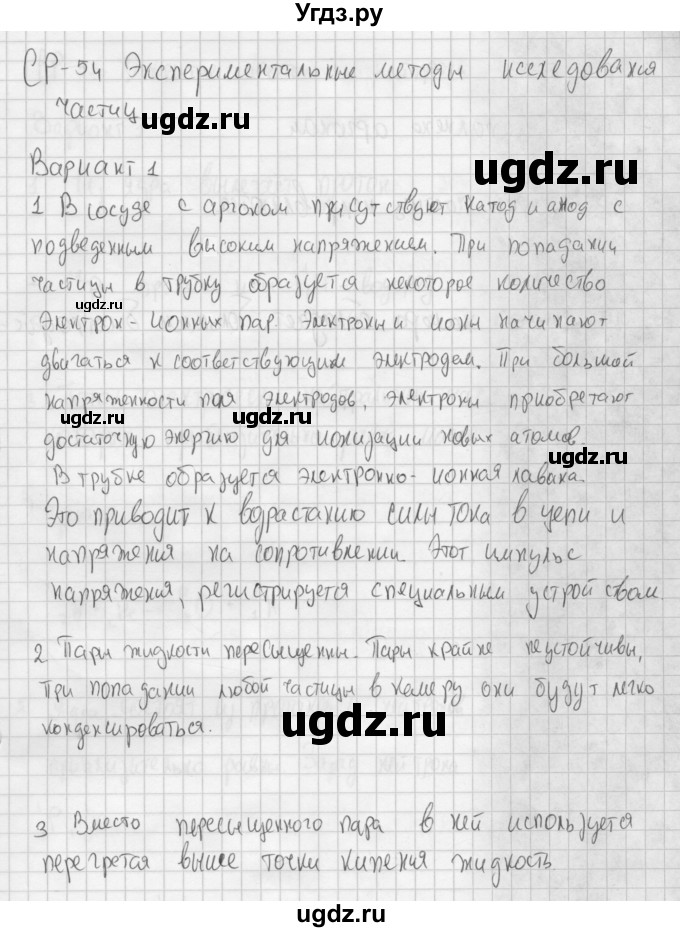 Угдз.ру
СР-54 Экспериментальные методы исследования
частиц
ugdz.ru
ugdz.ru
Вариант 1
1 В сосуде с аргоном присутствуют катод и анод с
подведенным высоким напряжением. При попадании
частицы в трубку образуется некоторое количество
ugdz.ru
электрон-ионных пар. Электроны и ионы начинают
двигаться к соответствующим электродам. При большой
напряженности поля электродов, электроны приобретают
ugdz.ru
ugdz.ru
достаточную энергию для ионизации новых атомов.
ugdz.ru
В трубке образуется электронно-ионная лавина.
Это приводит к возрастанию силы тока в цепи и
напряжения на сопротивлении. Этот импульс
напряжения, регистрируется специальным устройством.
2 Пары жидкости пересыщенны. Пары крайне неустойчивы,
при попадании любой частицы в камеру они будут легко
конденсироваться.
ugdz.ru
3 Вместо пересыщенного пара в ней используется
перегретая выше точки кипения жидкость
ugdz.ru
ugdz.ru